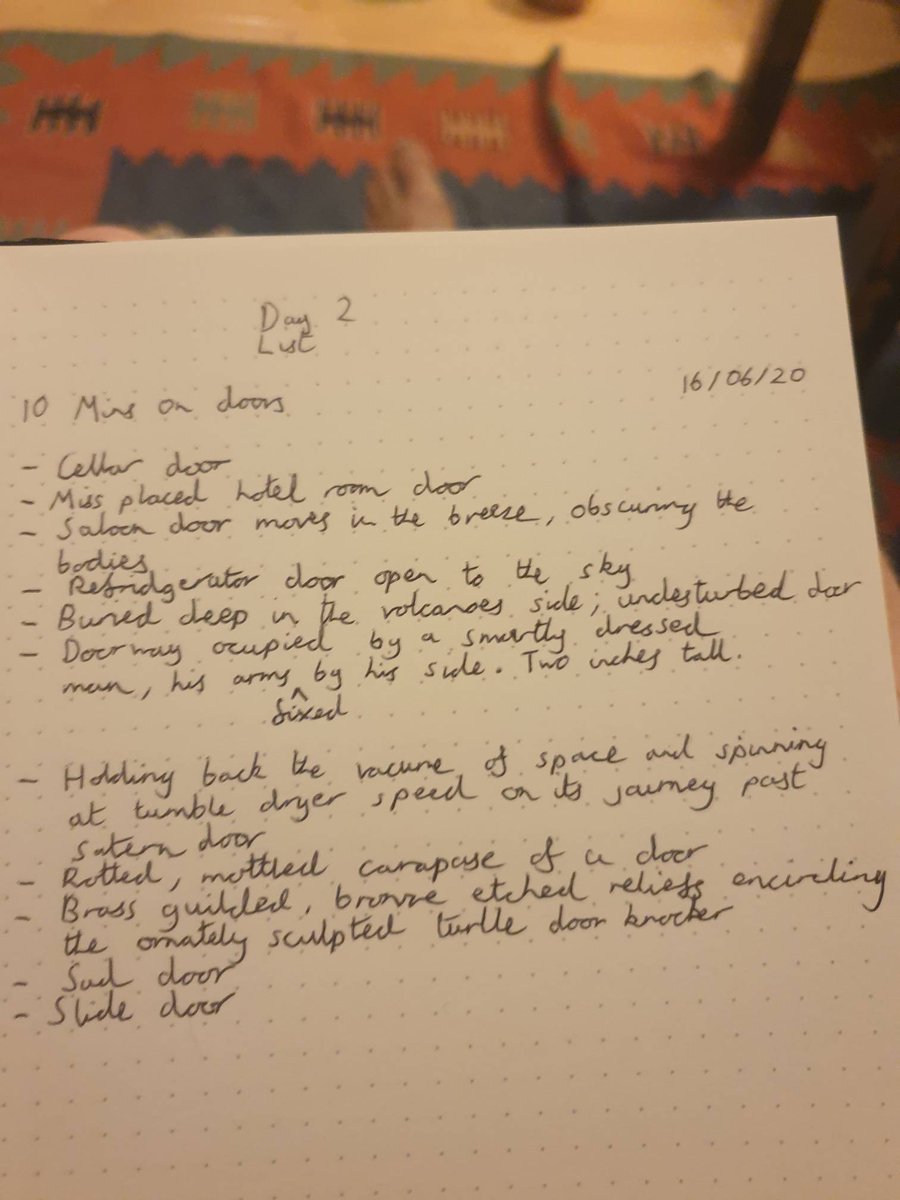 Day 2
List
16/06/20
10 Mins on doors
- Cellar door
- Miss placed hotel room door
- Saloon door moves in the breeze, obscuring the
bodies
- Refridgerator door open to the sky
- Buried deep in the volcanoes side; undesturbed door
- Doorway ocupied by a smartly dressed
man, his arms ^ by his side. Two inches tall.
fixed
- Holding back the vacume of space and spinning
at tumble dryer speed on its journey past
Satern door
- Rotted, mottled carapase of a door
- Brass guilded, bronze etched reliefs encircling
the ornately sculpted turtle door knocker
- Sad door
- Slide door